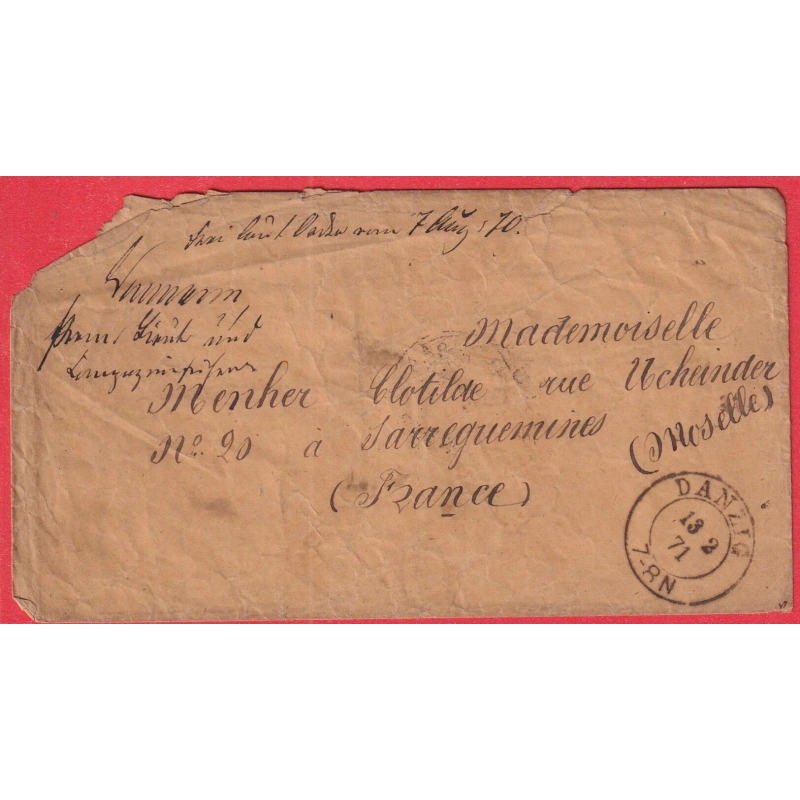 frei laut Ordre vom 7 Aug. 70.
Prem. Lieut und
Mademoiselle
Menher Clotilde rue Ucheinder
No. 20 à Sarreguemines (Moselle)
(France)
DANZIG
13 2
71
7-8N